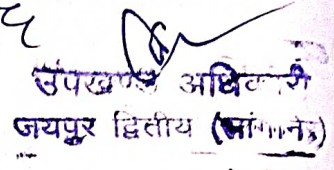 उपखण्ड अधिकारी
जयपुर द्वितीय (सांगानेर)